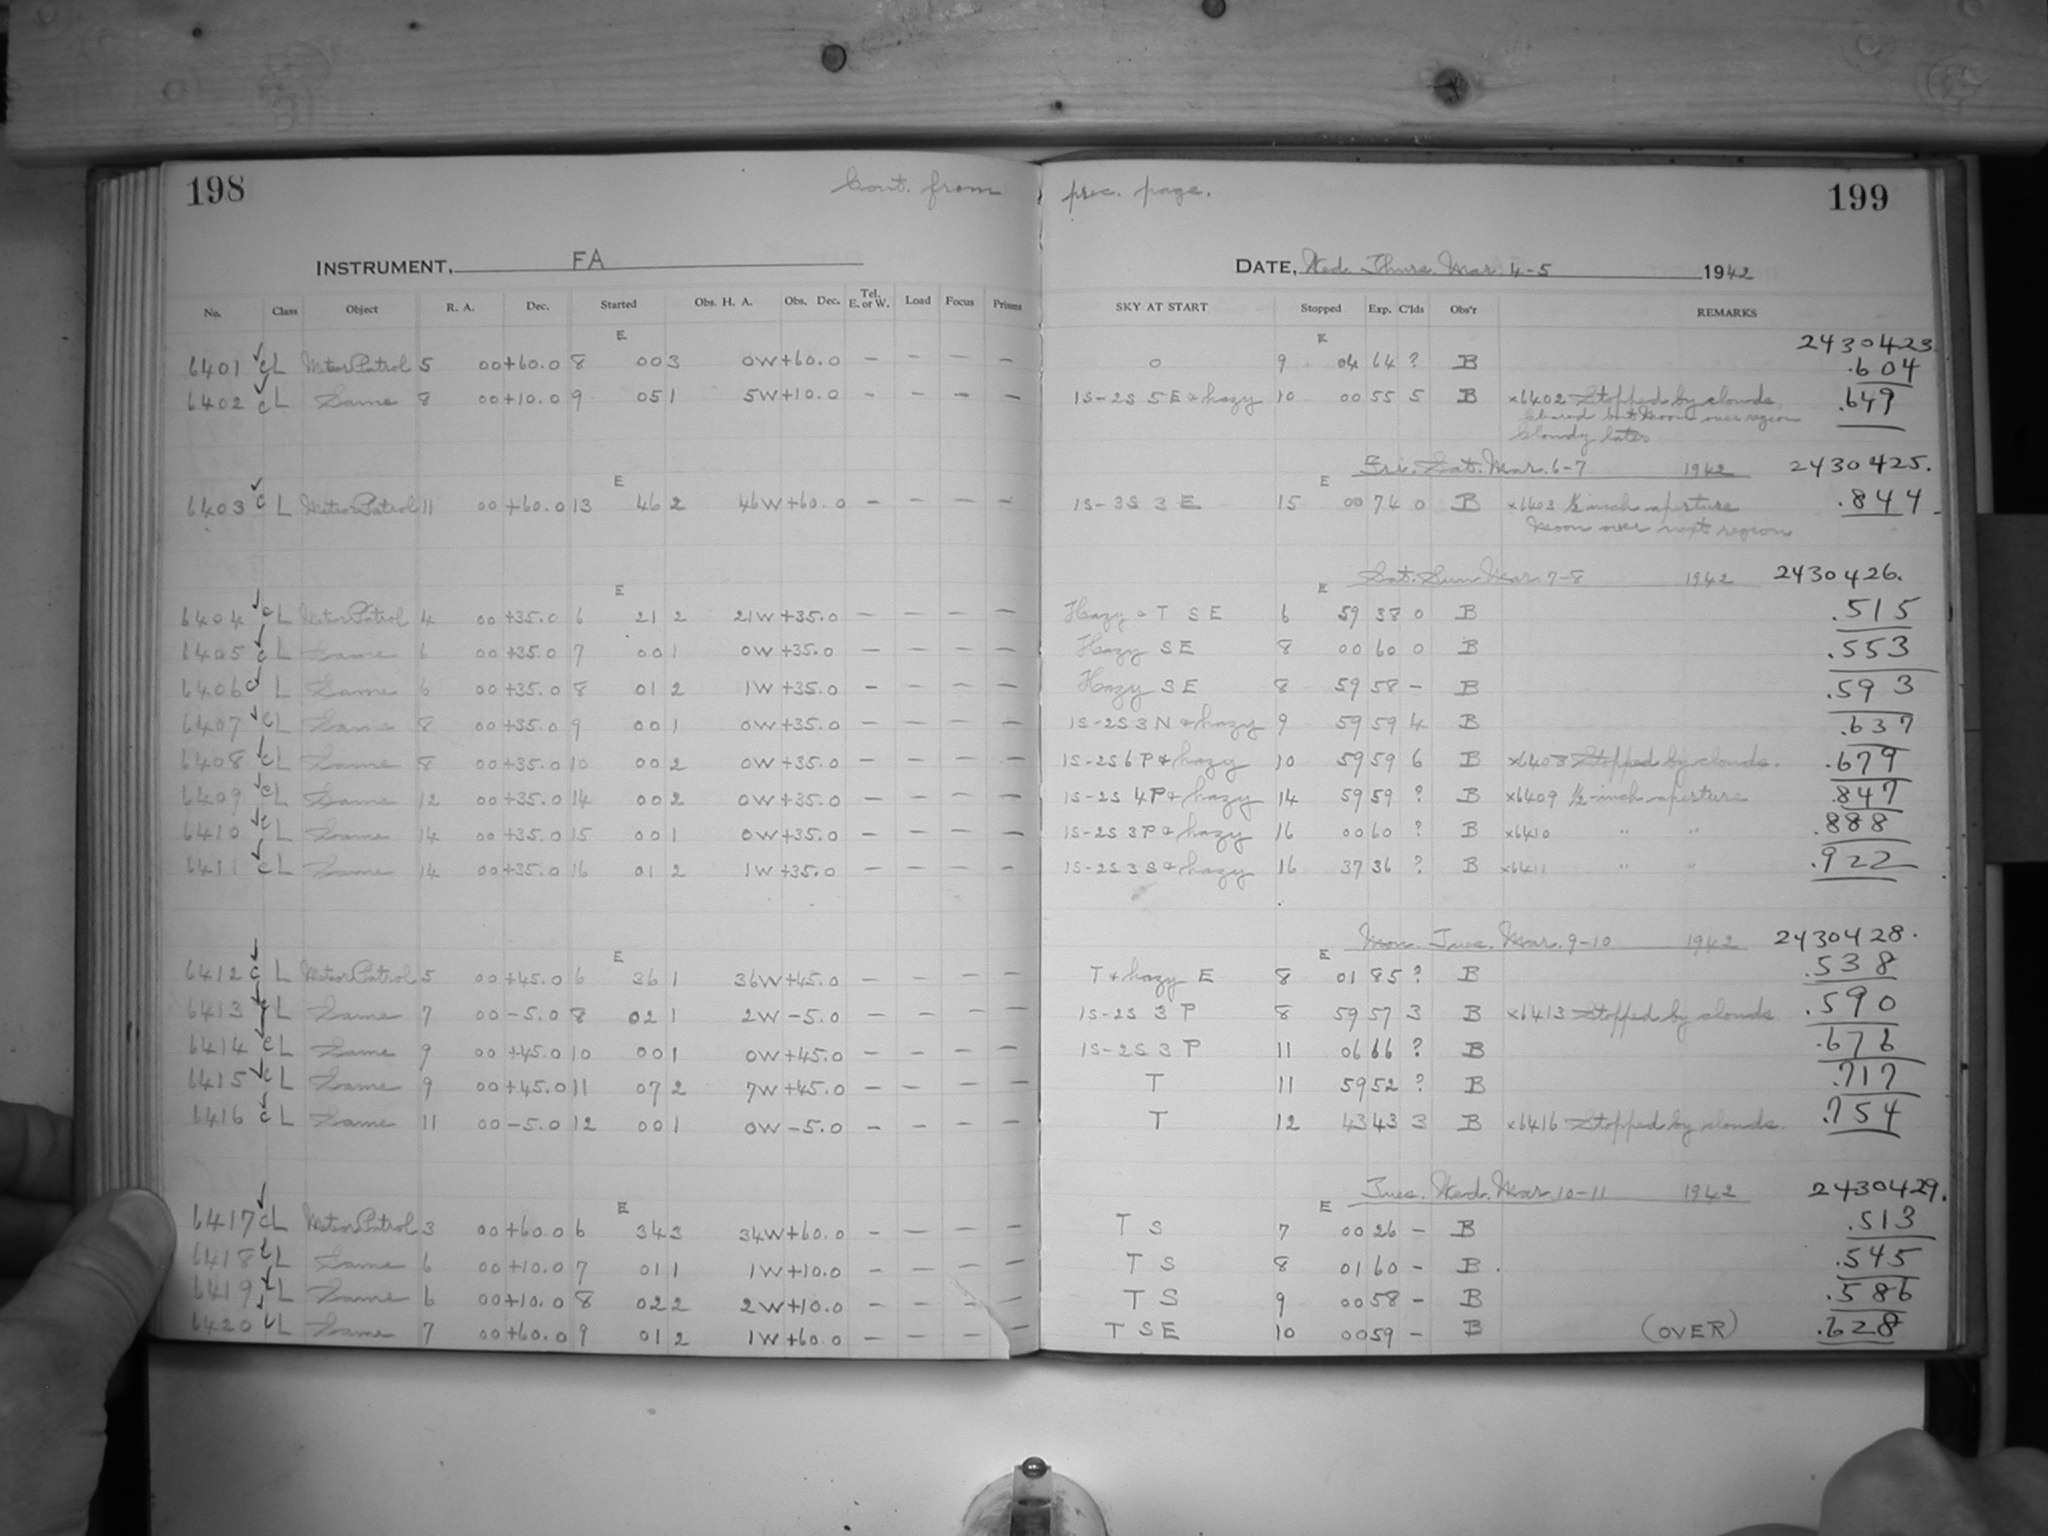 198 Cont. from prec. page. 199
INSTRUMENT, FA DATE, Wed. Thurs. Mar. 4-5 1942
No. Class Object R. A. Dec. Started Obs. H. A. Obs. Dec. Tel. E. or W. Load Focus Prisms SKY AT START Stopped Exp. C'lds Obs'r REMARKS
E E 2430423.
6401 c L Meteor Patrol 5 00 +60.0 8 00 3 0W +60.0 - - - - 0 9 04 64 ? B .604
6402 c L Same 8 00 +10.0 9 05 1 5W +10.0 - - - - 1S-2S 5E & hazy 10 00 55 5 B x6402 Stopped by clouds. .649
Cleared but Moon over region
Cloudy later
Fri. Sat. Mar. 6-7 1942 2430425.
E E
6403 c L Meteor Patrol 11 00 +60.0 13 46 2 46W +60.0 - - - - 1S-3S 3E 15 00 74 0 B x6403 1/2 inch aperture .844
Moon over next region
Sat. Sun. Mar. 7-8 1942 2430426.
E E
6404 c L Meteor Patrol 4 00 +35.0 6 21 2 21W +35.0 - - - - Hazy & T S E 6 59 38 0 B .515
6405 c L Same 6 00 +35.0 7 00 1 0W +35.0 - - - - Hazy SE 8 00 60 0 B .553
6406 c L Same 6 00 +35.0 8 01 2 1W +35.0 - - - - Hazy SE 8 59 58 - B .593
6407 c L Same 8 00 +35.0 9 00 1 0W +35.0 - - - - 1S-2S 3N & hazy 9 59 59 4 B .637
6408 c L Same 8 00 +35.0 10 00 2 0W +35.0 - - - - 1S-2S 6P & hazy 10 59 59 6 B x6408 Stopped by clouds. .679
6409 c L Same 12 00 +35.0 14 00 2 0W +35.0 - - - - 1S-2S 4P & hazy 14 59 59 ? B x6409 1/2-inch aperture .847
6410 c L Same 14 00 +35.0 15 00 1 0W +35.0 - - - - 1S-2S 3P & hazy 16 00 60 ? B x6410 " " .888
6411 c L Same 14 00 +35.0 16 01 2 1W +35.0 - - - - 1S-2S 3S & hazy 16 37 36 ? B x6411 " " .922
Mon. Tues. Mar. 9-10 1942 2430428.
E E
6412 c L Meteor Patrol 5 00 +45.0 6 36 1 36W +45.0 - - - - T & hazy E 8 01 85 ? B .538
6413 c L Same 7 00 -5.0 8 02 1 2W -5.0 - - - - 1S-2S 3P 8 59 57 3 B x6413 Stopped by clouds. .590
6414 c L Same 9 00 +45.0 10 00 1 0W +45.0 - - - - 1S-2S 3P 11 06 66 ? B .676
6415 c L Same 9 00 +45.0 11 07 2 7W +45.0 - - - - T 11 59 52 ? B .717
6416 c L Same 11 00 -5.0 12 00 1 0W -5.0 - - - - T 12 43 43 3 B x6416 Stopped by clouds. .754
Tues. Wed. Mar. 10-11 1942 2430429.
E E
6417 c L Meteor Patrol 3 00 +60.0 6 34 3 34W +60.0 - - - - T S 7 00 26 - B .513
6418 c L Same 6 00 +10.0 7 01 1 1W +10.0 - - - - T S 8 01 60 - B .545
6419 c L Same 6 00 +10.0 8 02 2 2W +10.0 - - - - T S 9 00 58 - B .586
6420 c L Same 7 00 +60.0 9 01 2 1W +60.0 - - - - T SE 10 00 59 - B (OVER) .628